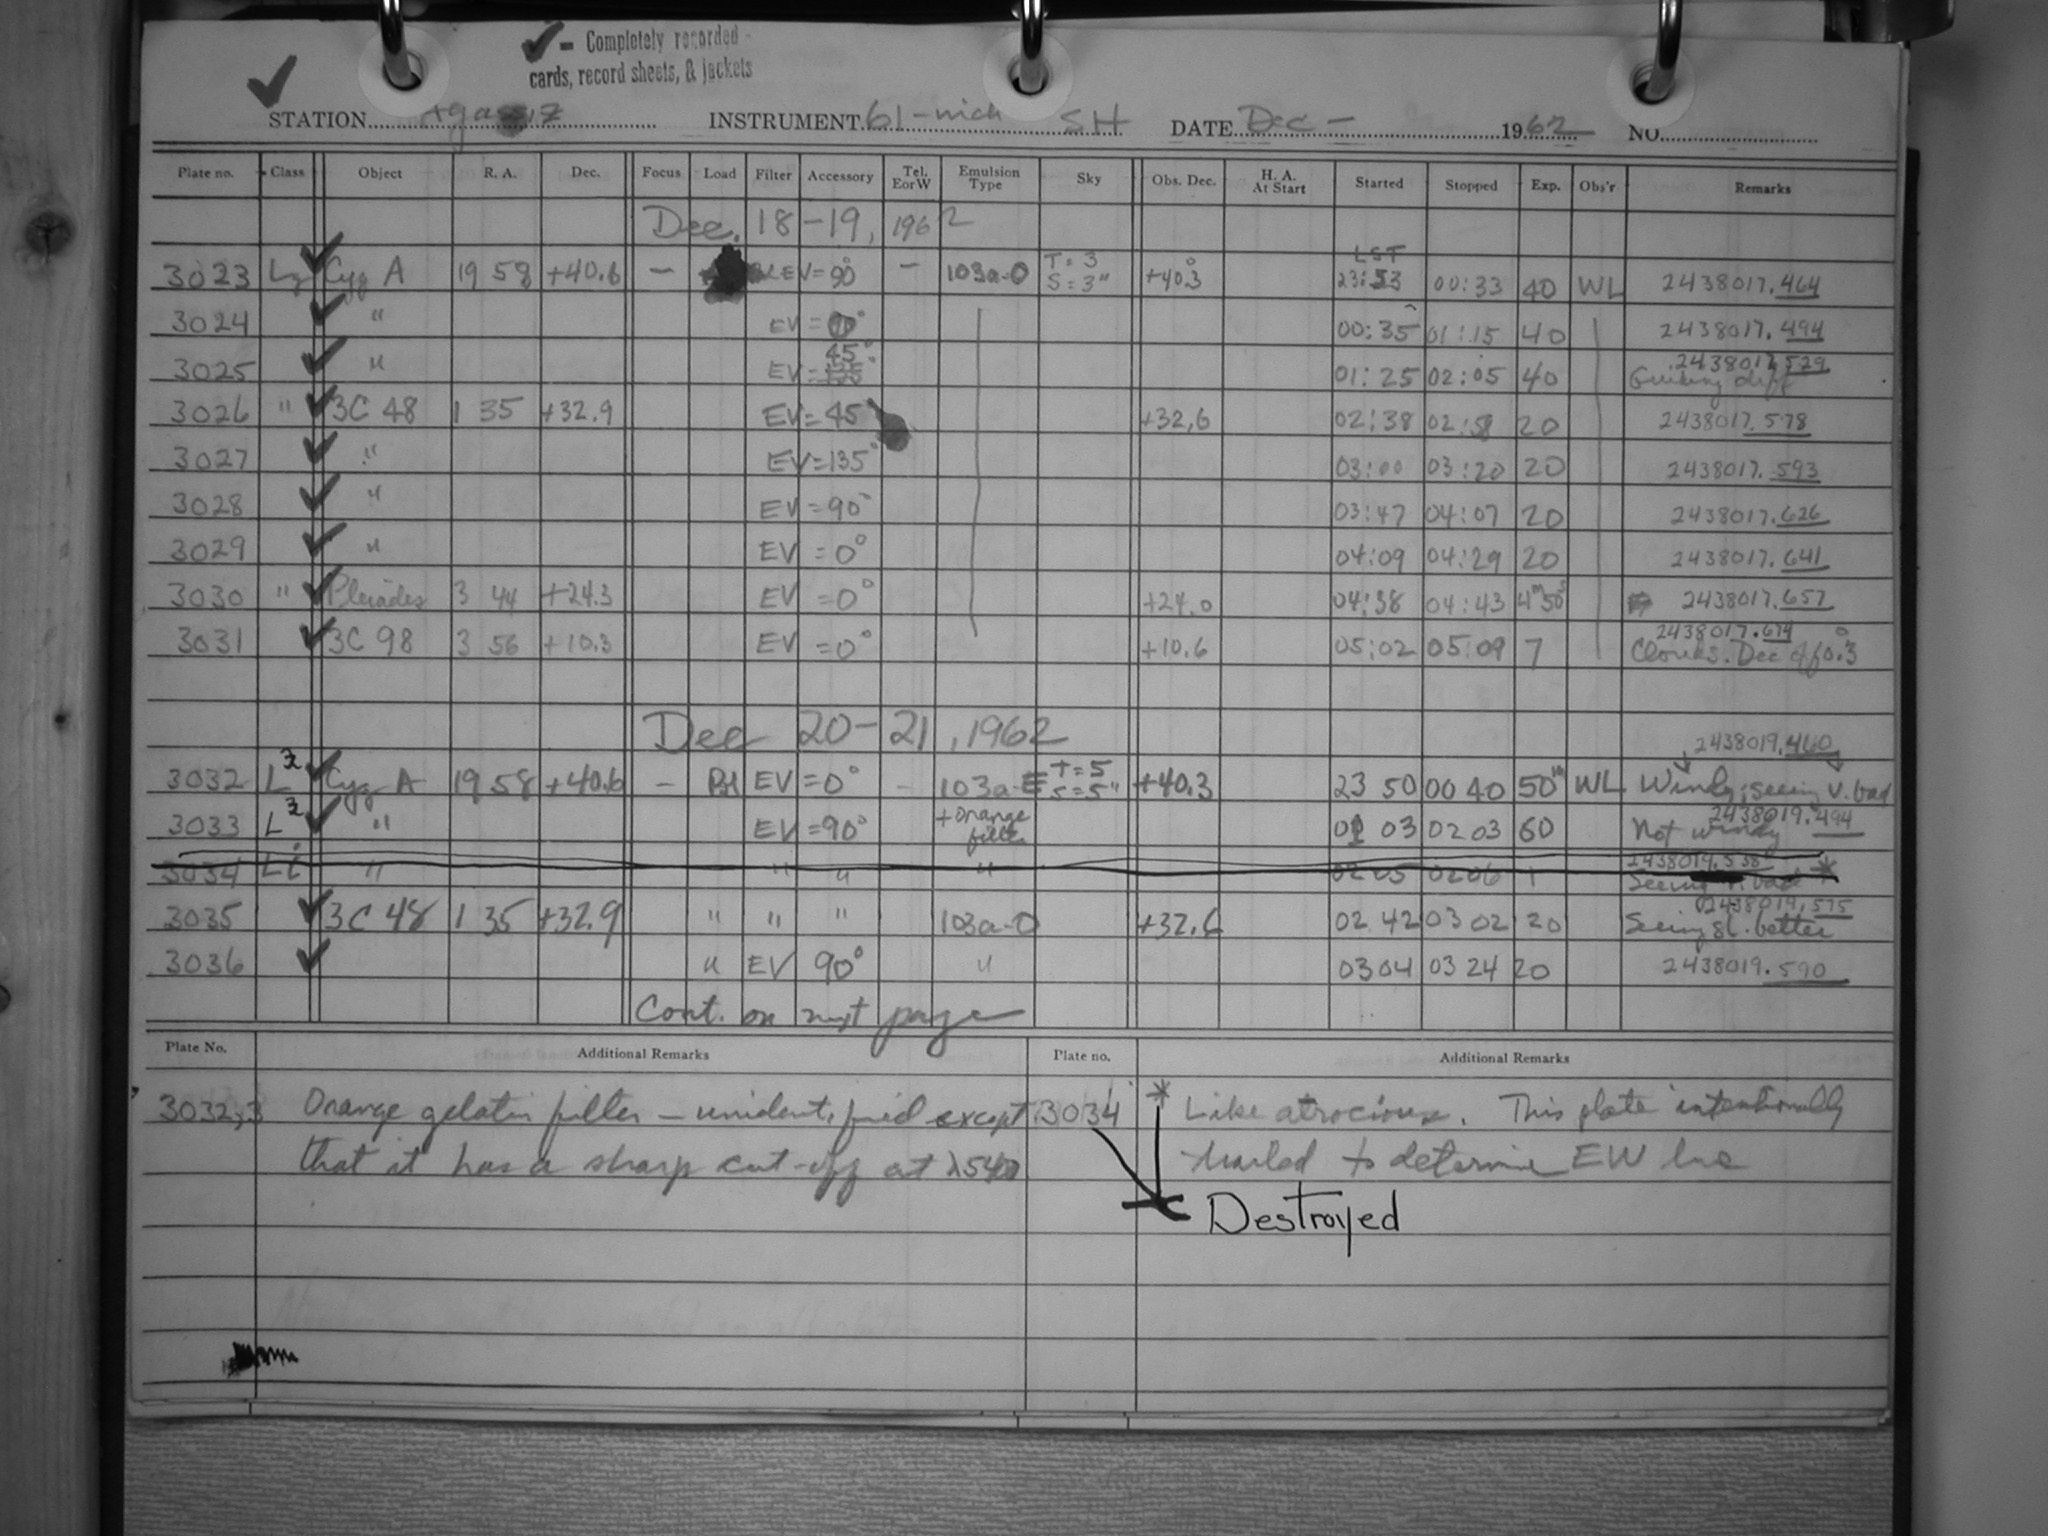 ✓ - Completely recorded -
cards, record sheets, & jackets
STATION Agassiz INSTRUMENT 61-inch SH DATE Dec - 1962 NO.
Plate no. Class Object R. A. Dec. Focus Load Filter Accessory Tel. E or W Emulsion Type Sky Obs. Dec. H. A. At Start Started Stopped Exp. Obs'r Remarks
Dec. 18-19, 1962
LST
3023 ✓ Cyg A 19 58 +40.6 - EV=90° - 103a-O T=3 S=3" +40.3° 23:53 00:33 40 WL 2438017.464
3024 ✓ " EV= 00:35 01:15 40 2438017.494
3025 ✓ " EV= 45° 01:25 02:05 40 2438017.529 Guiding diff
3026 " ✓ 3C 48 1 35 +32.9 EV=45° +32.6 02:38 02:58 20 2438017.578
3027 ✓ " EV=135° 03:00 03:20 20 2438017.593
3028 ✓ " EV=90° 03:47 04:07 20 2438017.626
3029 ✓ " EV=0° 04:09 04:29 20 2438017.641
3030 " ✓ Pleiades 3 44 +24.3 EV=0° +24.0 04:38 04:43 4m50s 2438017.657
3031 ✓ 3C 98 3 56 +10.3 EV=0° +10.6 05:02 05:09 7 2438017.674 Clouds. Dec off 0.3°
Dec 20-21, 1962
3032 ✓ Cyg A 19 58 +40.6 - Bl EV=0° - 103a-E T=5 S=5" +40.3 23 50 00 40 50m WL 2438019.460 Windy; seeing v. bad
3033 ✓ " EV=90° + orange filter 01 03 02 03 60 2438019.494 Not windy
3034 Li " " " " 02 05 02 06 1 2438019.538 Seeing v. bad *
3035 ✓ 3C 48 1 35 +32.9 " " " 103a-O +32.6 02 42 03 02 20 2438019.575 Seeing sl. better
3036 ✓ " EV 90° " 03 04 03 24 20 2438019.590
Cont. on next page
Plate No. Additional Remarks Plate no. Additional Remarks
3032,3 Orange gelatin filter - unidentified except 3034 * Like atrocious. This plate intentionally
that it has a sharp cut-off at λ5400 trailed to determine EW line
Destroyed